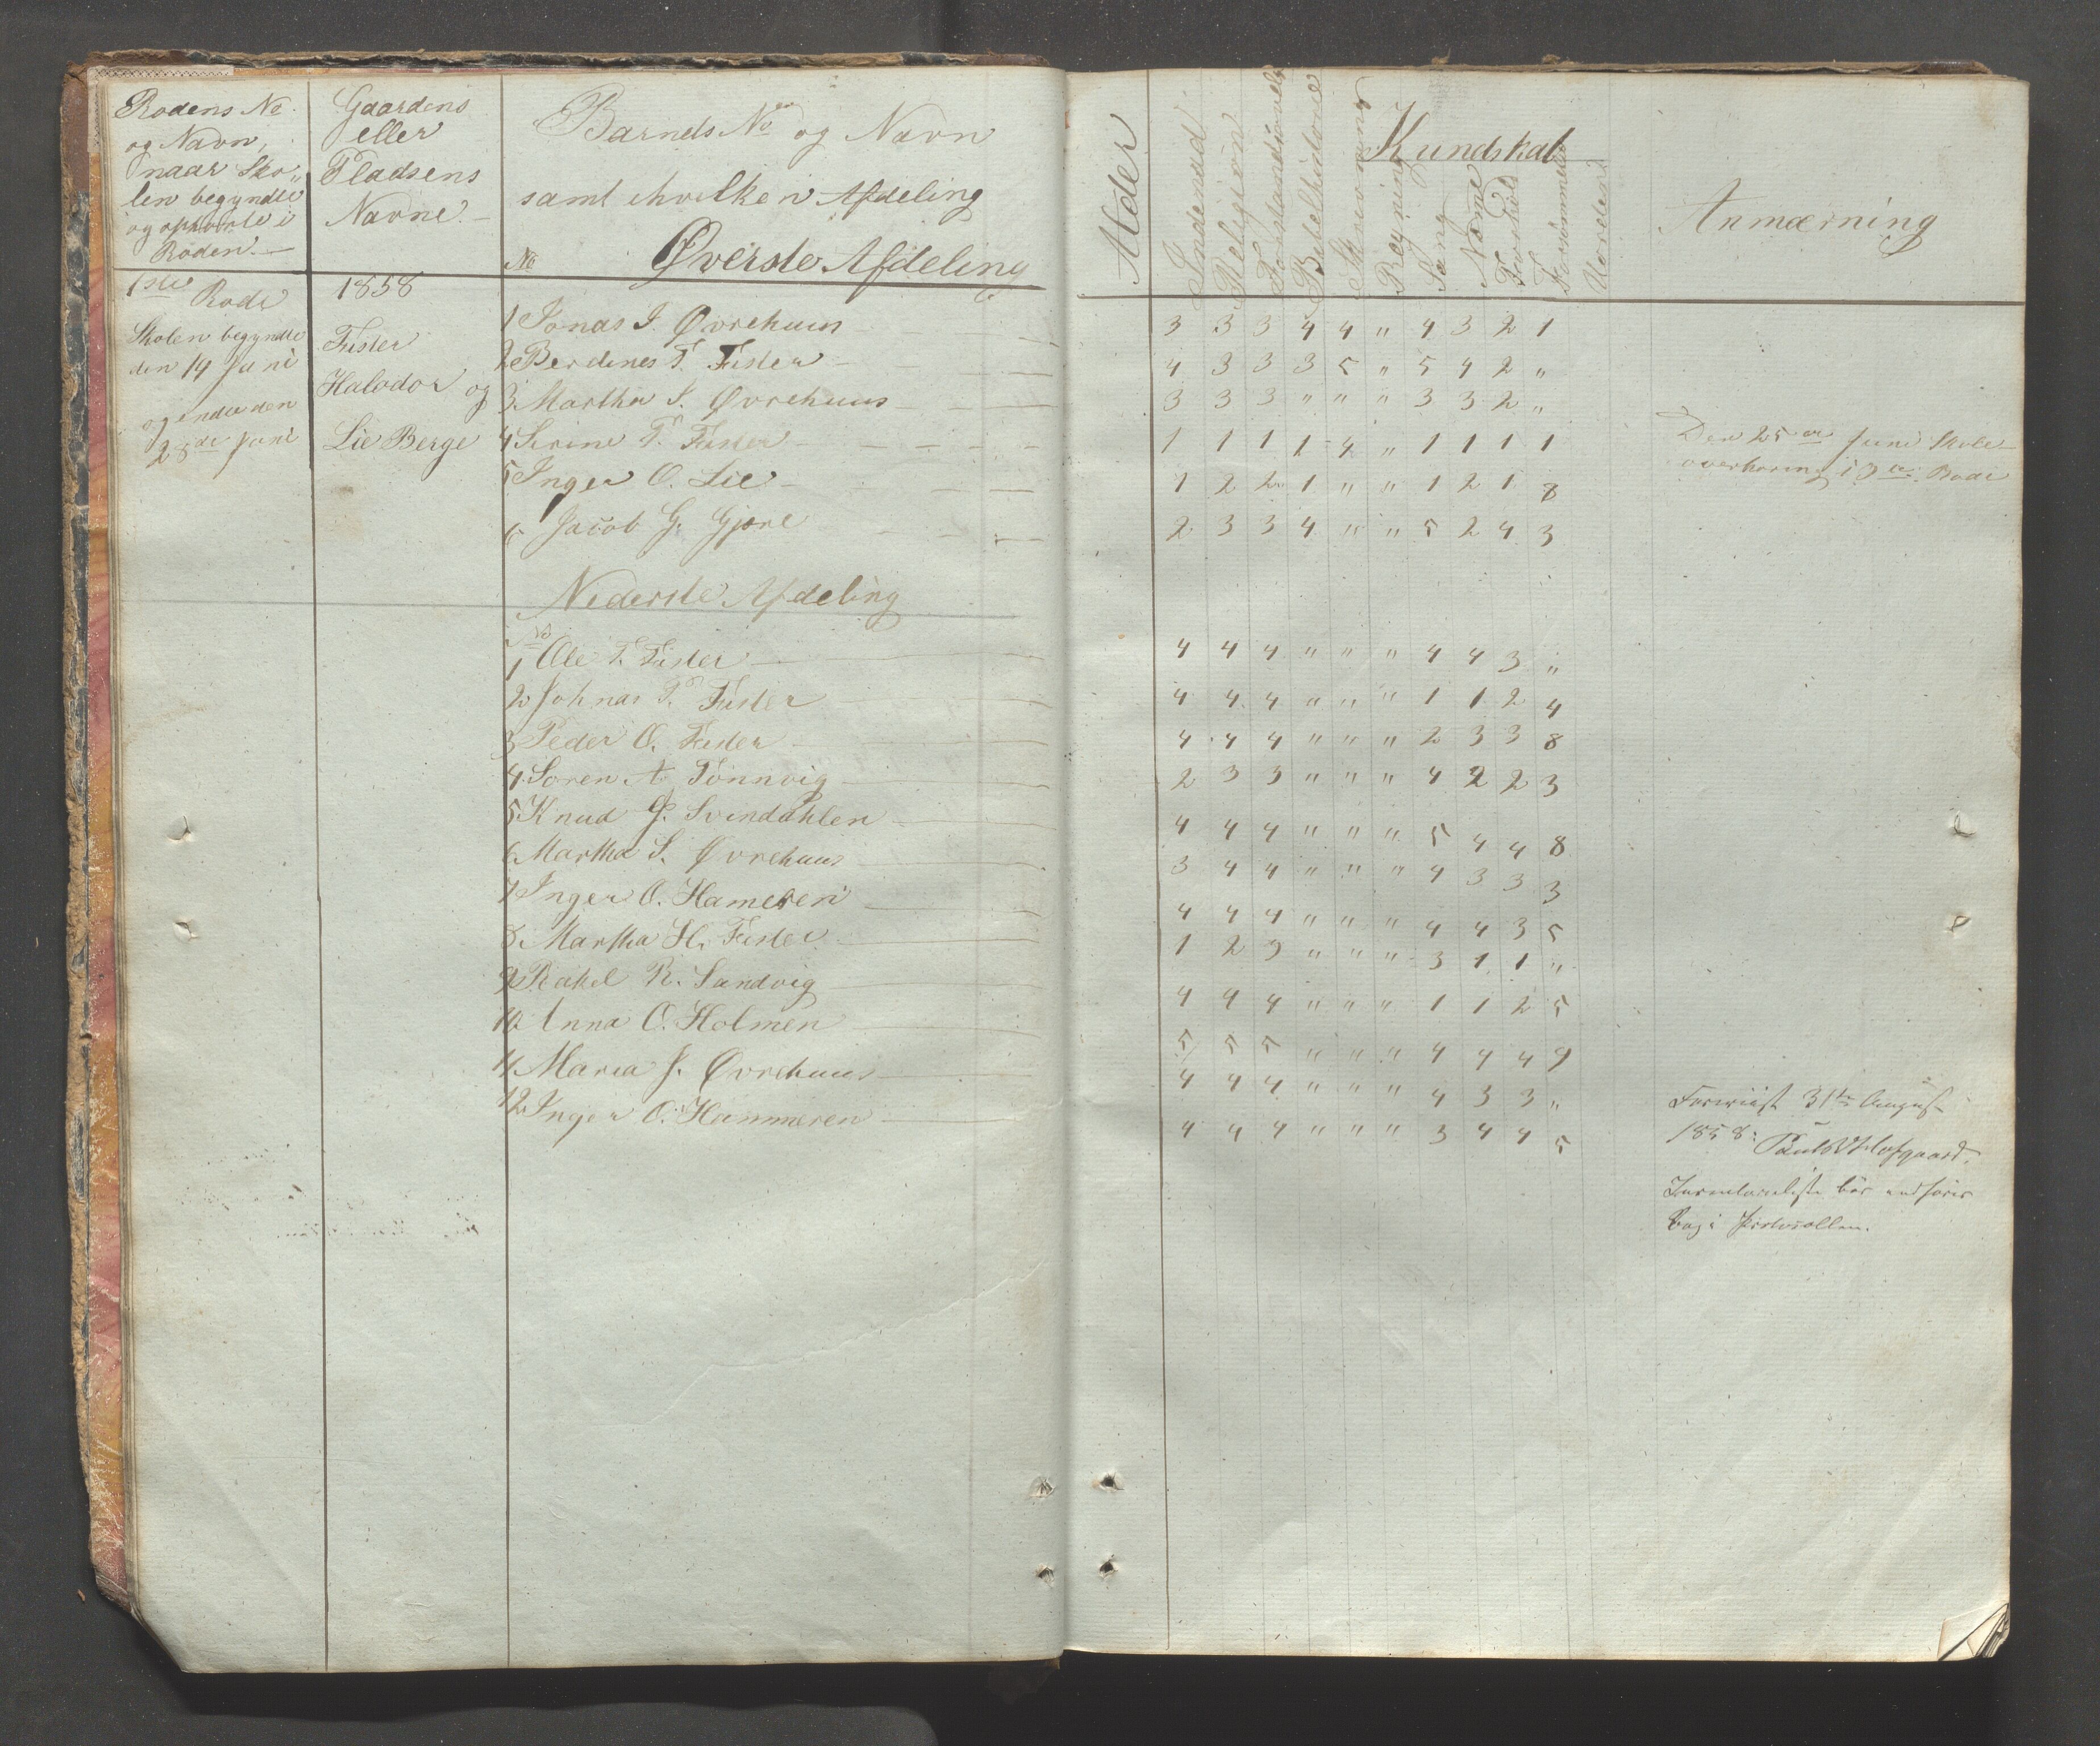 Rodens No
og Navn,
naar Sko„
len begyndte
og ophørte i
Roden.
Gaardens
eller
Pladsens
Navne.
Barnets No og Navn
samt i hvilken Afdeling
No Øverste Afdeling
1ste Rode
Skolen begyndte
den 14 Juni
og endte den
28de Juni
1858
Fister
Halodor og
Lie Berge
1 Jonas J. Øvrehuus
2 Berdines T. Fister
3 Martha S. Øvrehuus
4 Serine T. Fister
5 Inger O. Lie
6 Jacob G. Gjøre
Nederste Afdeling
No
1 Ole T. Fister
2 Johnas T. Fister
3 Peder O. Fister
4 Søren A. Tønnvig
5 Knud J. Svindahlen
6 Martha S. Øvrehuus
7 Inger O. Hameren
8 Martha H. Fister
9 Rakel R. Sandvig
10 Anna O. Holmen
11 Maria J. Øvrehuus
12 Inger O. Hammeren
Alder
Kundskab
Indenad
Religion
Forstandsøvelse
Bibelhistorie
Skrivning
Regning
Sang
Nemme
Forhold
Forsømmelse
Anmærning
3 3 3 4 4 " 4 3 2 1
4 3 3 3 5 " 5 4 2 "
3 3 3 " " " 3 3 2 "
1 1 1 1 2 " 1 1 1 1
1 2 2 1 " " 1 2 1 8
2 3 3 4 " " 5 2 4 3
4 4 4 " " " 4 4 3 "
4 4 4 " " " 1 1 2 4
4 4 4 " " " 2 3 3 8
2 3 3 " " " 4 2 2 3
4 4 4 " " " 5 4 4 8
3 4 4 " " " 4 3 3 3
4 4 4 " " " 4 4 3 5
1 2 3 " " " 3 1 1 "
4 4 4 " " " 1 1 2 5
5 5 5 " " " 4 4 4 9
4 4 4 " " " 4 3 3 "
4 4 4 " " " 3 4 4 5
Den 25de Juni Skole
overhøring i 3de Rode
Foreviist 31te August
1858:
bag i Protocollen.